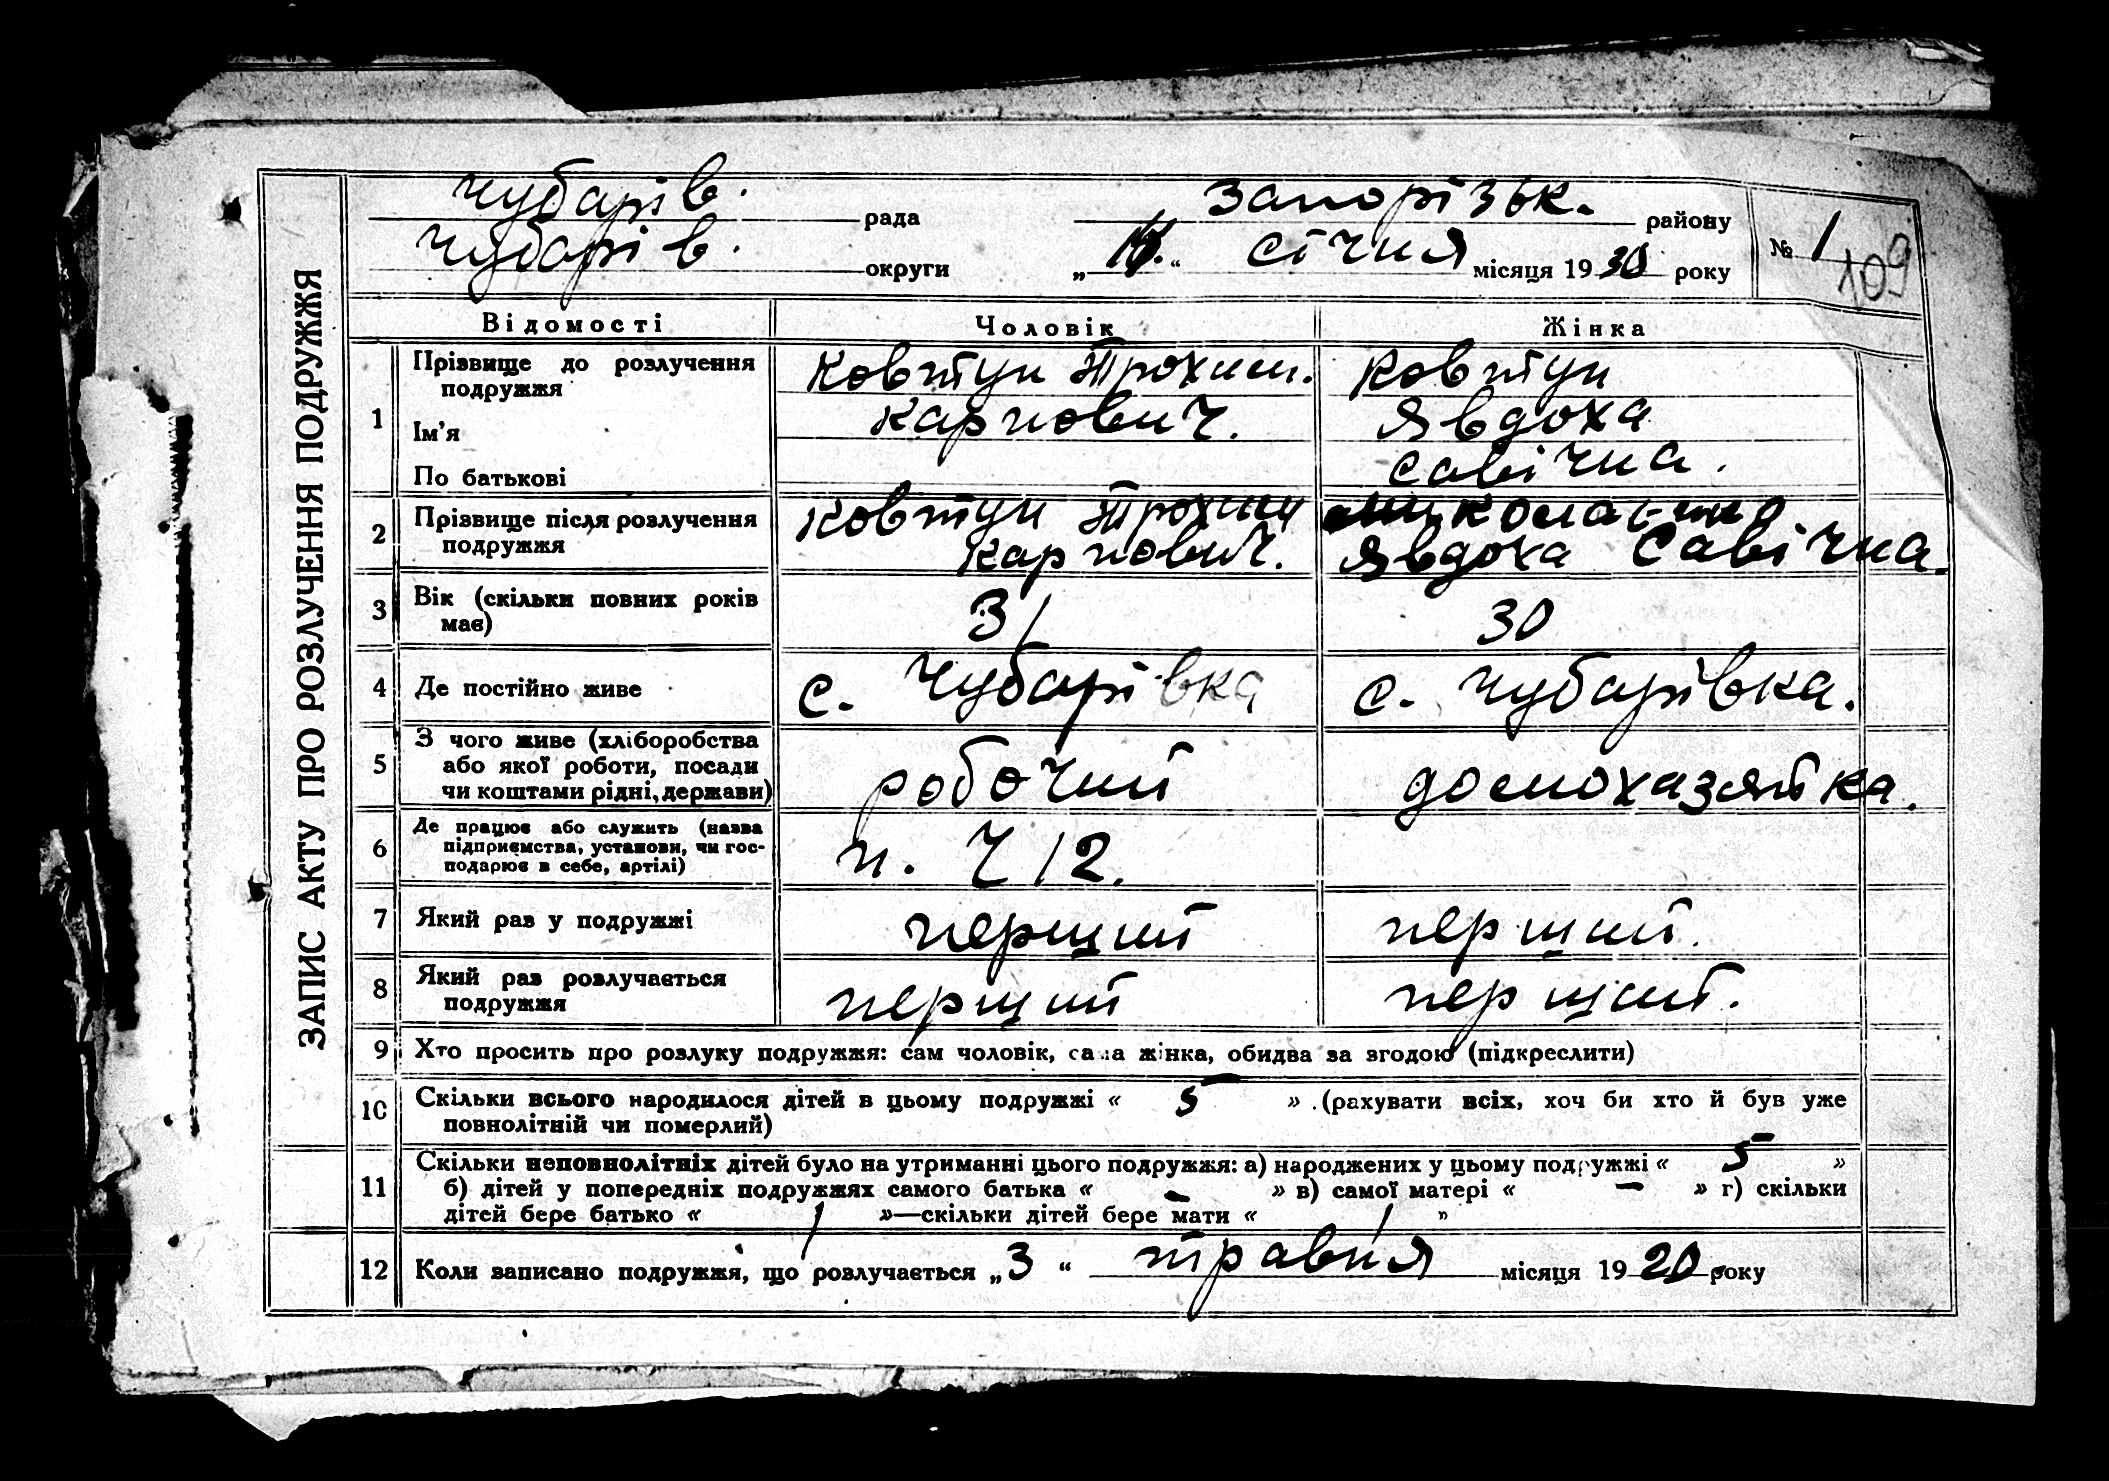 ЗАПИС АКТУ ПРО РОЗЛУЧЕННЯ ПОДРУЖЖЯ
Чубарів. рада Запорізьк. району
Чубарів. округи „ “ січня місяця 1930 року № 1
109
Відомості Чоловік Жінка
1 Прізвище до розлучення Ковтун Трохим. Ковтун
подружжя
Ім'я Карпович. Явдоха
По батькові Савічна.
2 Прізвище після розлучення Ковтун Трохим
подружжя Карпович. Явдоха Савічна.
3 Вік (скільки повних років 31 30
має)
4 Де постійно живе с. Чубарівка с. Чубарівка.
5 З чого живе (хліборобства
або якої роботи, посади робочий домохазяйка.
чи коштами рідні, держави)
6 Де працює або служить (назва
підприємства, установи, чи гос- п. Ч 12.
подарює в себе, артілі)
7 Який раз у подружжі перший перший.
8 Який раз розлучається перший перший.
подружжя
9 Хто просить про розлуку подружжя: сам чоловік, сама жінка, обидва за згодою (підкреслити)
10 Скільки всього народилося дітей в цьому подружжі « 5 » (рахувати всіх, хоч би хто й був уже
повнолітній чи померлий)
11 Скільки неповнолітніх дітей було на утриманні цього подружжя: а) народжених у цьому подружжі « 5 »
б) дітей у попередніх подружжях самого батька « – » в) самої матері « – » г) скільки
дітей бере батько « 1 »—скільки дітей бере мати « 1 »
12 Коли записано подружжя, що розлучається „3“ травня місяця 1920 року